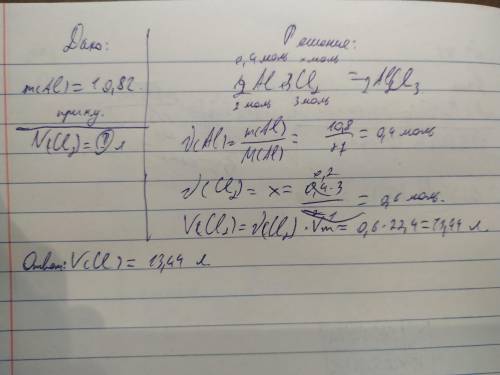 Дано:
m(Al) = 10,8г.
прин.у.
V(Cl₂) = ? л
Решение:
0,4 моль x моль
2Al + 3Cl₂ = 2AlCl₃
2 моль 3 моль
ν(Al) = m(Al)/M(Al) = 10,8/27 = 0,4 моль
ν(Cl₂) = x = 0,4·3/2 = 0,6 моль.
V(Cl₂) = ν(Cl₂) · Vm = 0,6·22,4 = 13,44 л.
Ответ: V(Cl) = 13,44 л.